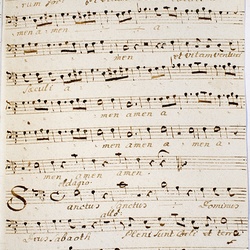 men a men a
men et vitam venturi
Saeculi a
men a men
men amen a men a
men amen amen
Adagio
Sanctus Sanctus Dominus
allo
Deus sabaoth Pleni sunt Coeli et terra